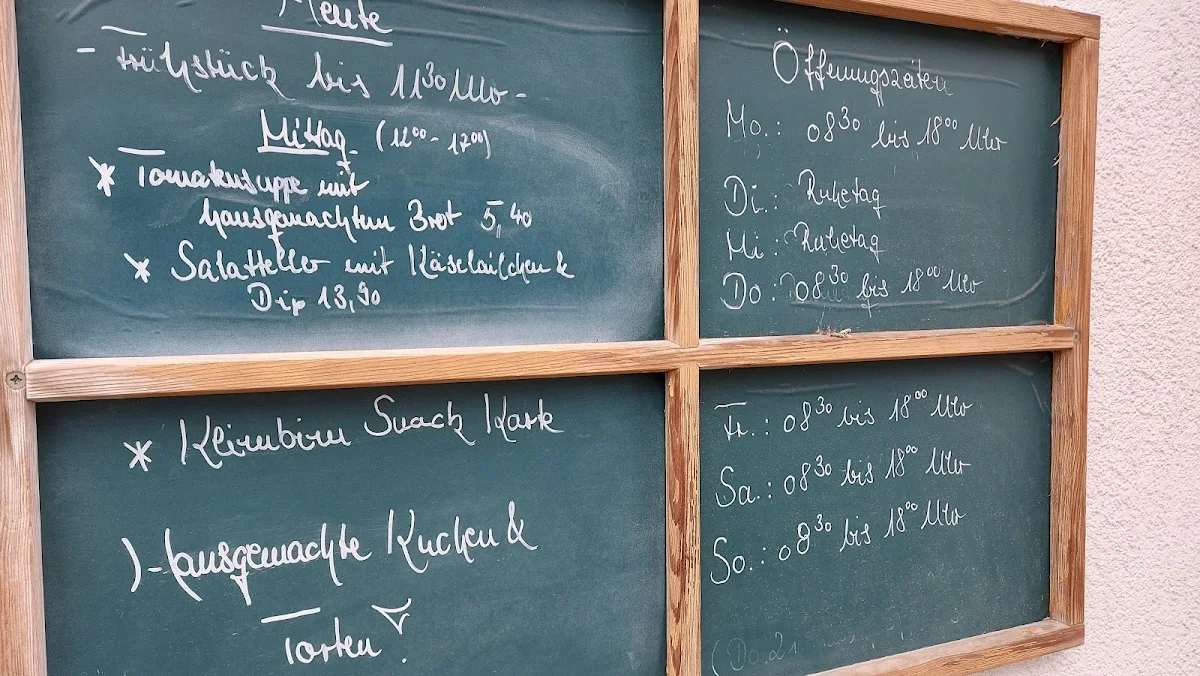 Heute
- Frühstück bis 11³⁰ Uhr -
Mittag (12⁰⁰ - 17⁰⁰)
* Tomatensuppe mit
hausgemachtem Brot 5,40
* Salatteller mit Käselaibchen &
Dip 13,90
* Snack Karte
Hausgemachte Kuchen &
Torten!
Öffnungszeiten
Mo.: 08³⁰ bis 18⁰⁰ Uhr
Di.: Ruhetag
Mi.: Ruhetag
Do.: 08³⁰ bis 18⁰⁰ Uhr
Fr.: 08³⁰ bis 18⁰⁰ Uhr
Sa.: 08³⁰ bis 18⁰⁰ Uhr
So.: 08³⁰ bis 18⁰⁰ Uhr
(Do. 21